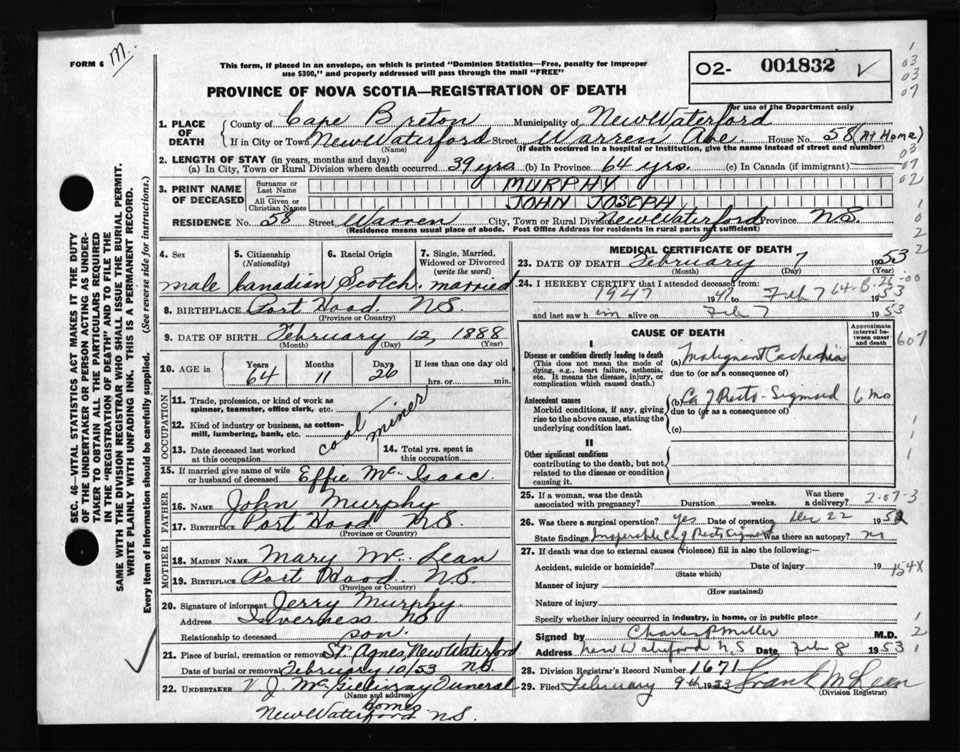 FORM 6
M.
This form, if placed in an envelope, on which is printed "Dominion Statistics—Free, penalty for improper
use $300," and properly addressed will pass through the mail "FREE"
PROVINCE OF NOVA SCOTIA—REGISTRATION OF DEATH
02- 001832
For use of the Department only
1. PLACE OF DEATH
County of Cape Breton Municipality of New Waterford
If in City or Town New Waterford Street Warren Ave House No. 58 (At Home)
(Name) (If death occurred in a hospital or institution, give the name instead of street and number)
2. LENGTH OF STAY (in years, months and days)
(a) In City, Town or Rural Division where death occurred 39 yrs. (b) In Province 64 yrs. (c) In Canada (if immigrant)
3. PRINT NAME OF DECEASED
Surname or Last Name MURPHY
All Given or Christian Names JOHN JOSEPH
RESIDENCE No. 58 Street Warren City, Town or Rural Division New Waterford Province N.S.
(Residence means usual place of abode. Post Office Address for residents in rural parts not sufficient)
4. Sex 5. Citizenship (Nationality) 6. Racial Origin 7. Single, Married, Widowed or Divorced (write the word)
male Canadian Scotch married
8. BIRTHPLACE Port Hood NS
(Province or Country)
9. DATE OF BIRTH February 12, 1888
(Month) (Day) (Year)
10. AGE in Years Months Days If less than one day
64 11 26 hrs. or min.
OCCUPATION
11. Trade, profession, or kind of work as spinner, teamster, office clerk, etc.
12. Kind of industry or business, as cotton-mill, lumbering, bank, etc.
coal miner
13. Date deceased last worked at this occupation
14. Total yrs. spent in this occupation
15. If married give name of wife or husband of deceased Effie Mc Isaac
FATHER
16. Name John Murphy
17. Birthplace Port Hood NS.
(Province or Country)
MOTHER
18. Maiden Name Mary Mc Lean
19. Birthplace Port Hood. N.S.
(Province or Country)
20. Signature of informant Jerry Murphy.
Address Inverness NS
Relationship to deceased son.
21. Place of burial, cremation or removal St. Agnes, New Waterford
Date of burial or removal February 10/53 NS.
22. UNDERTAKER V. J. McGillivray Funeral Homes
(Name and address)
New Waterford NS.
MEDICAL CERTIFICATE OF DEATH
23. DATE OF DEATH February 7 1953
(Month) (Day) (Year)
24. I HEREBY CERTIFY that I attended deceased from:
1947 1947 Feb 7 1953
and last saw him alive on Feb 7 1953
64-B-26-00
CAUSE OF DEATH
Approximate interval between onset and death
I
Disease or condition directly leading to death
(This does not mean the mode of dying, e.g., heart failure, asthenia, etc. It means the disease, injury, or complication which caused death.)
(a) Malignant Cachexia
due to (or as a consequence of)
Antecedent causes
Morbid conditions, if any, giving rise to the above cause, stating the underlying condition last.
(b) Ca of Recto-Sigmoid 6 mo
due to (or as a consequence of)
(c)
II
Other significant conditions
contributing to the death, but not related to the disease or condition causing it.
607
25. If a woman, was the death associated with pregnancy? Duration weeks. Was there a delivery?
2-07-3
26. Was there a surgical operation? yes Date of operation Dec 22 1952
State findings Inoperable Ca of Recto Sigmoid Was there an autopsy? no
27. If death was due to external causes (violence) fill in also the following:—
Accident, suicide or homicide? Date of injury 19
(State which)
154X
Manner of injury
(How sustained)
Nature of injury
Specify whether injury occurred in industry, in home, or in public place
Signed by Charles P Miller M.D.
Address New Waterford N.S Date Feb 8 1953
28. Division Registrar's Record Number 1671
29. Filed February 9th 1953 Frank McLean
(Division Registrar)
SEC. 46—VITAL STATISTICS ACT MAKES IT THE DUTY
OF THE UNDERTAKER OR PERSON ACTING AS UNDER-
TAKER TO OBTAIN ALL THE PARTICULARS REQUIRED
IN THE "REGISTRATION OF DEATH" AND TO FILE THE
SAME WITH THE DIVISION REGISTRAR WHO SHALL ISSUE THE BURIAL PERMIT.
WRITE PLAINLY WITH UNFADING INK. THIS IS A PERMANENT RECORD.
Every item of information should be carefully supplied. (See reverse side for instructions.)
1
03
03
07
03
07
02
1
0
2
2
1
1
1
2
1